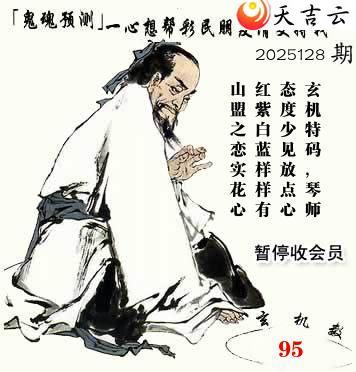 天吉云
「鬼魂预测」一心想帮彩民朋
2025128 期
玄机特码，琴师
态度少见放点心
红紫白蓝样样有
山盟之恋实花心
暂停收会员
玄机数
95